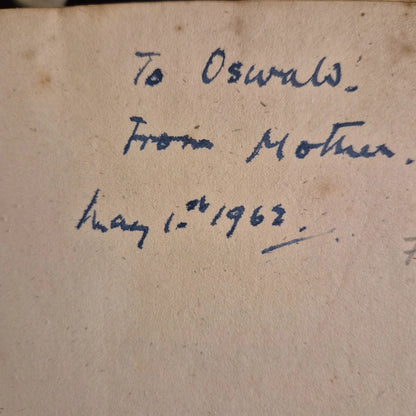 To Oswald.
From Mother.
May 1st 1962.